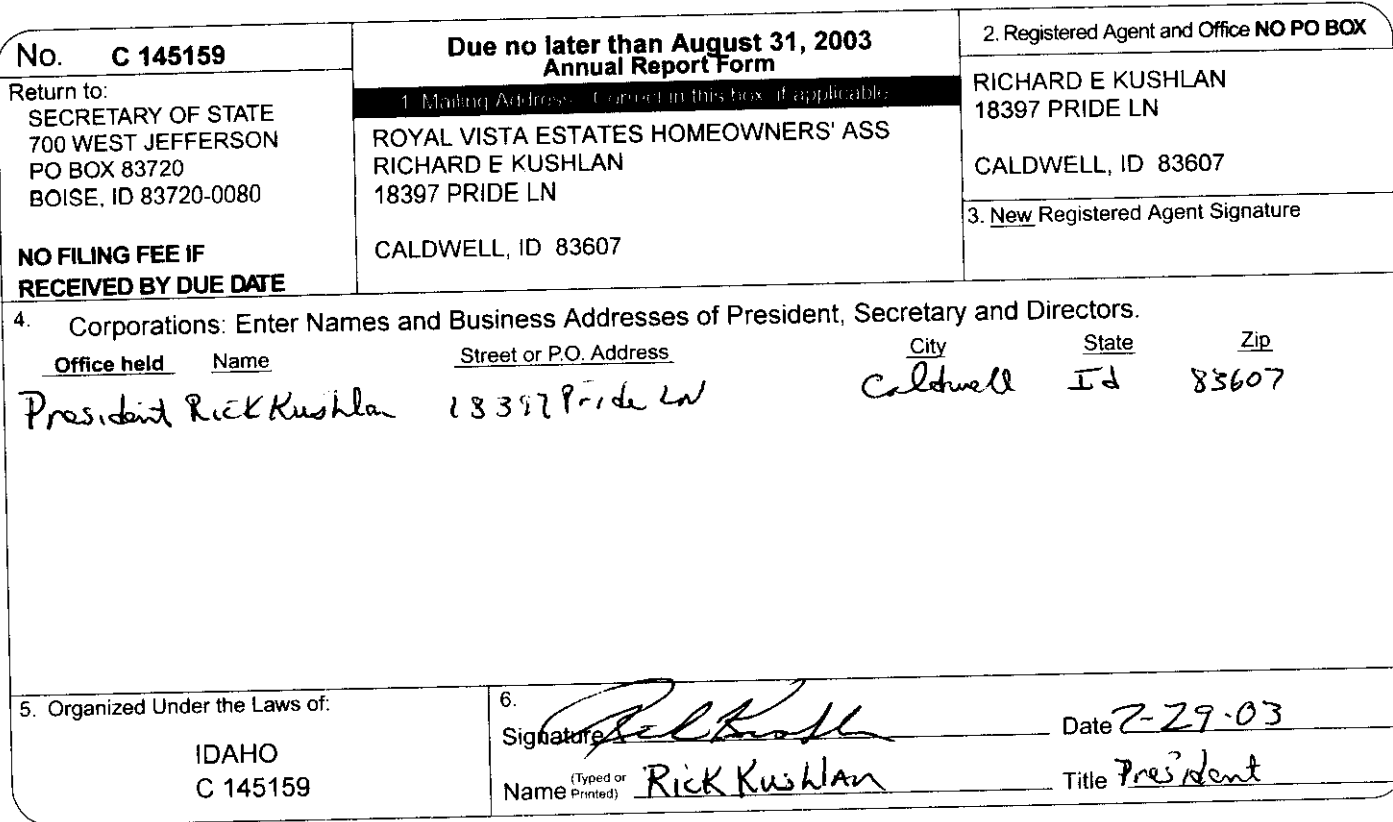 No. C 145159
Return to:
SECRETARY OF STATE
700 WEST JEFFERSON
PO BOX 83720
BOISE, ID 83720-0080
NO FILING FEE IF
RECEIVED BY DUE DATE
Due no later than August 31, 2003
Annual Report Form
1. Mailing Address: Correct in this box, if applicable
ROYAL VISTA ESTATES HOMEOWNERS' ASS
RICHARD E KUSHLAN
18397 PRIDE LN
CALDWELL, ID 83607
2. Registered Agent and Office NO PO BOX
RICHARD E KUSHLAN
18397 PRIDE LN
CALDWELL, ID 83607
3. New Registered Agent Signature
4. Corporations: Enter Names and Business Addresses of President, Secretary and Directors.
Office held Name Street or P.O. Address City State Zip
President Rick Kushlan 18397 Pride LN Caldwell Id 83607
5. Organized Under the Laws of:
IDAHO
C 145159
6.
Signature Rick Kushlan Date 7-29-03
Name (Typed or Printed) Rick Kushlan Title President